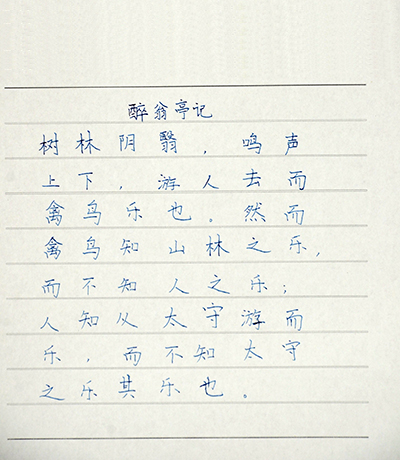 醉翁亭记
树林阴翳，鸣声
上下，游人去而
禽鸟乐也。然而
禽鸟知山林之乐，
而不知人之乐；
人知从太守游而
乐，而不知太守
之乐其乐也。